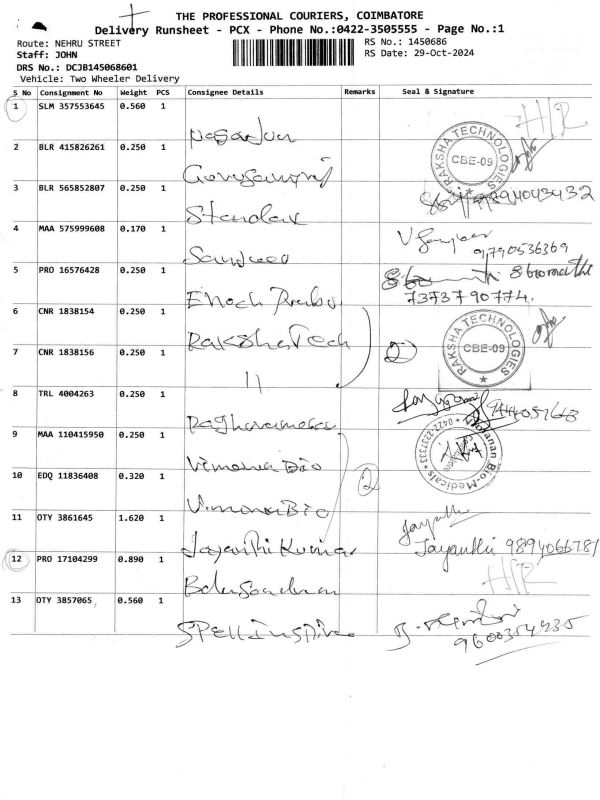 THE PROFESSIONAL COURIERS, COIMBATORE
Delivery Runsheet - PCX - Phone No.:0422-3505555 - Page No.:1
Route: NEHRU STREET
RS No.: 1450686
Staff: JOHN
RS Date: 29-Oct-2024
DRS No.: DCJB145068601
Vehicle: Two Wheeler Delivery
S No Consignment No Weight PCS Consignee Details Remarks Seal & Signature
1 SLM 357553645 0.560 1
H/R
2 BLR 415826261 0.250 1
RAKSHA TECHNOLOGIES CBE-09
3 BLR 565852807 0.250 1
9894043432
4 MAA 575999608 0.170 1
9790536369
5 PRO 16576428 0.250 1 Enoch
7373790774.
6 CNR 1838154 0.250 1 RakshaTech
RAKSHA TECHNOLOGIES CBE-09
7 CNR 1838156 0.250 1 11
2
8 TRL 4004263 0.250 1
9 MAA 110415950 0.250 1 Vimana Bio
Bio-Medicals 0422-2237333
10 EDQ 11836408 0.320 1 Vimana Bio
2
11 OTY 3861645 1.620 1 Jayanthi Kumar
Jayanthi 9894066781
12 PRO 17104299 0.890 1
H/R
13 OTY 3857065 0.560 1 SPELLINSPIRE
9600354935